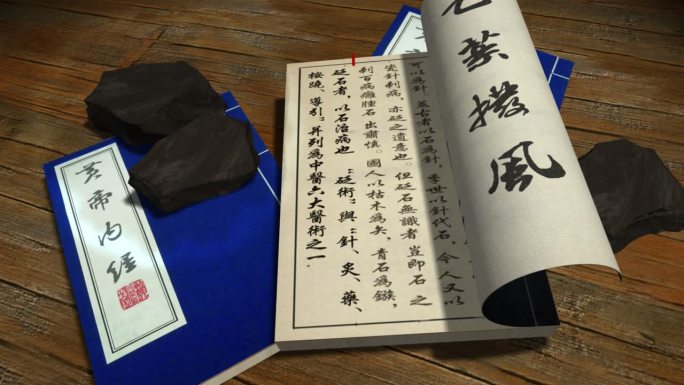 撥風
可以為針，蓋古者以石為針，季世以針代石，今人又以
瓷針刺病，亦砭之遺意也。但砭石無識者豈即石之
刺百病癰腫石 出肅慎。國人以枯木為矢，青石為鏃，
砭石者，以石治病也。“砭術”與“針、灸、藥、
按蹺、導引”并列為中醫六大醫術之一
黃帝内經